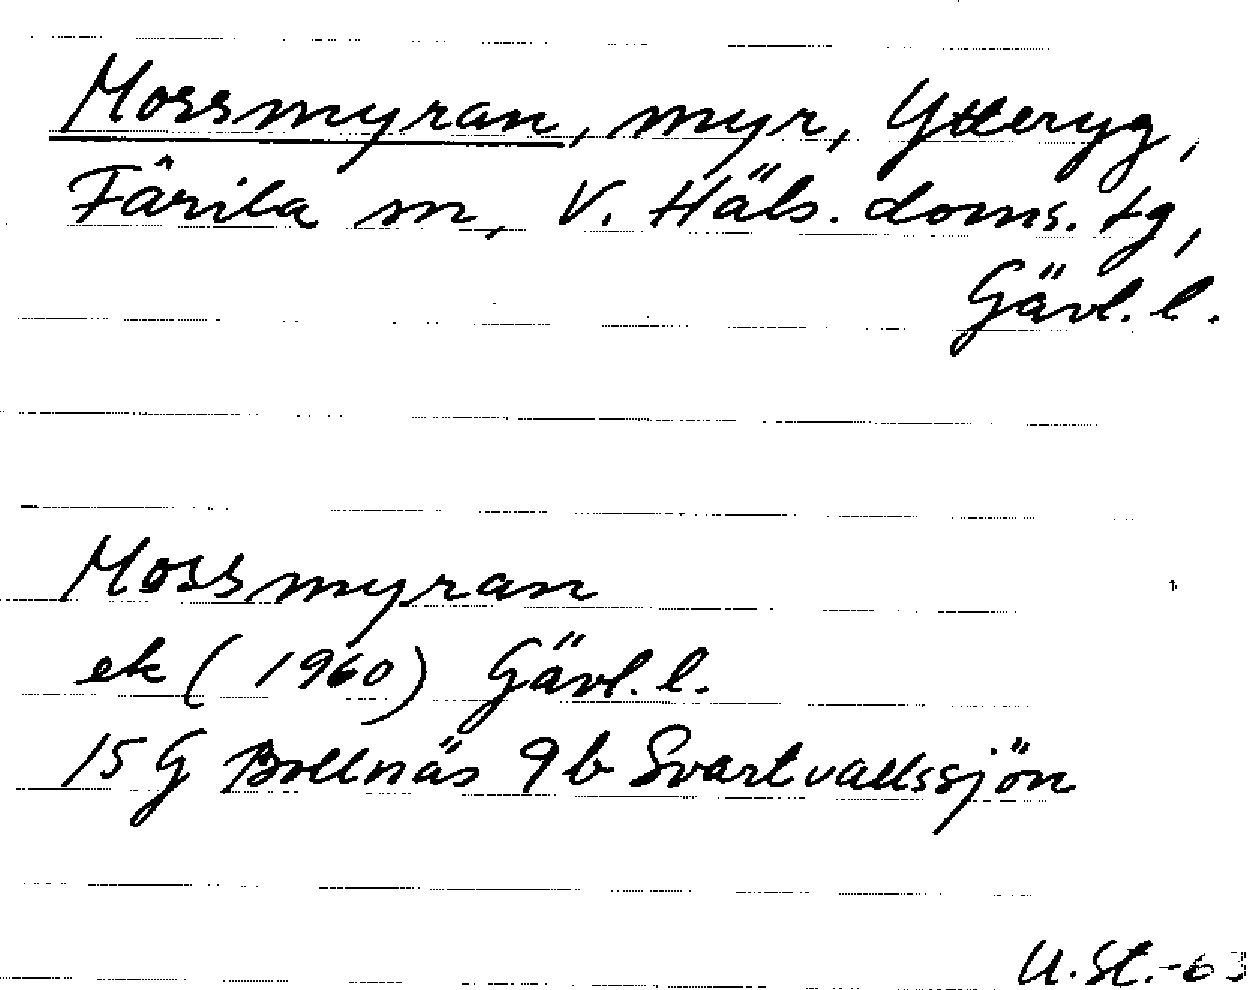 Mossmyran, myr, Ytteryg,
Färila sn, V. Häls. doms. tg,
Gävl. l.
Mossmyran
ek (1960) Gävl. l.
15 G Bollnäs 9b Svartvallssjön
U. St. -63